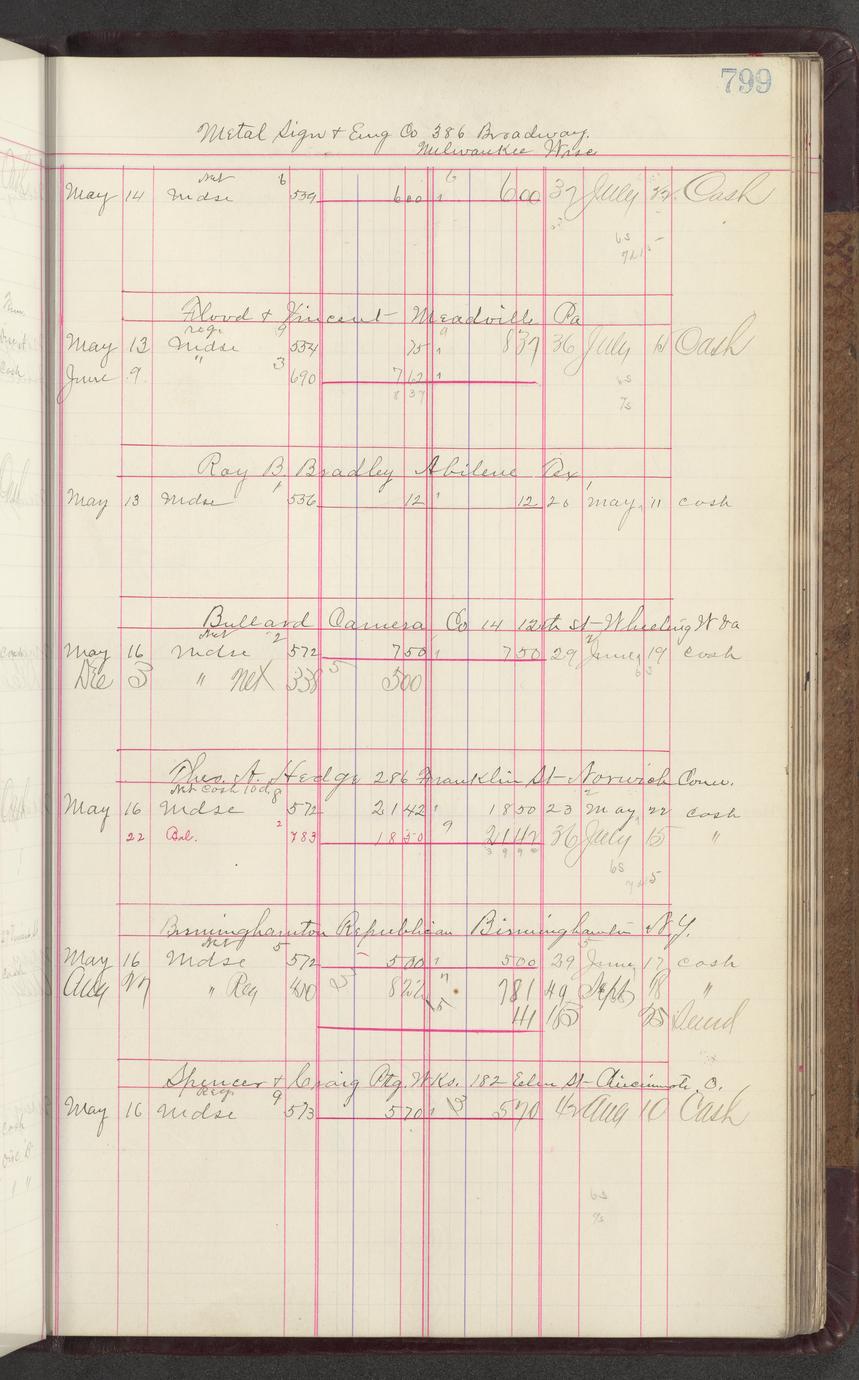 799
Metal Sign & Eng Co 386 Broadway.
Milwaukee Wisc
Net 6 6
May 14 Mdse 539 600 600 37 July 22. Cash
6s
Flood & Vincent Meadville Pa
reg. 9
May 13 Mdse 554 75 837 36 July Cash
June 9 " 3 690 762
8 37
6s
7s
Roy B. Bradley Abilene Tex
May 13 Mdse 1 536 12 12 20 May 11 cash
Bullard Camera Co 14 12th St Wheeling W Va
Net 2
May 16 Mdse 572 750 750 29 June 19 cash
Dec 3 " Net 338 5 500
Thos. A. Hedge 286 Franklin St Norwich Conn.
Net Cash 10 d. 8
May 16 Mdse 572 2142 1850 23 May 22 cash
22 Bal. 2 783 1850 9 2142 36 July 15 "
3 9 9
6s
Birminghamton Republican Birminghamton N.Y.
Net 5
May 16 Mdse 572 500 500 29 June 17 cash
Aug 27 " Reg 400 822 781 49 Sept 18 "
41 25
Spencer & Craig Ptg. Wks. 182 Elm St Cincinnati, O.
Reg. 9
May 16 Mdse 573 570 13 570 42 Aug 10 Cash
6s
9s